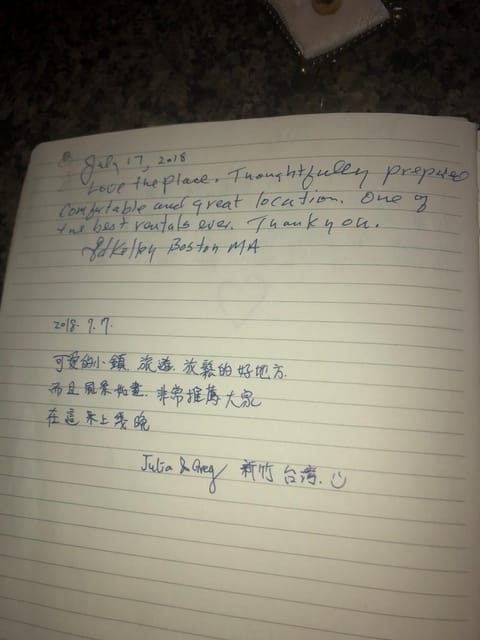 July 17, 2018
Love the place. Thoughtfully prepared
comfortable and great location. One of
the best rentals ever. Thank you.
Ed Kelley Boston MA
2018. 9. 7.
可愛的小鎮. 旅遊. 放鬆的好地方.
而且風景如畫. 非常推薦大家
在這來上幾晚
Julia & Greg 新竹 台湾. ☺